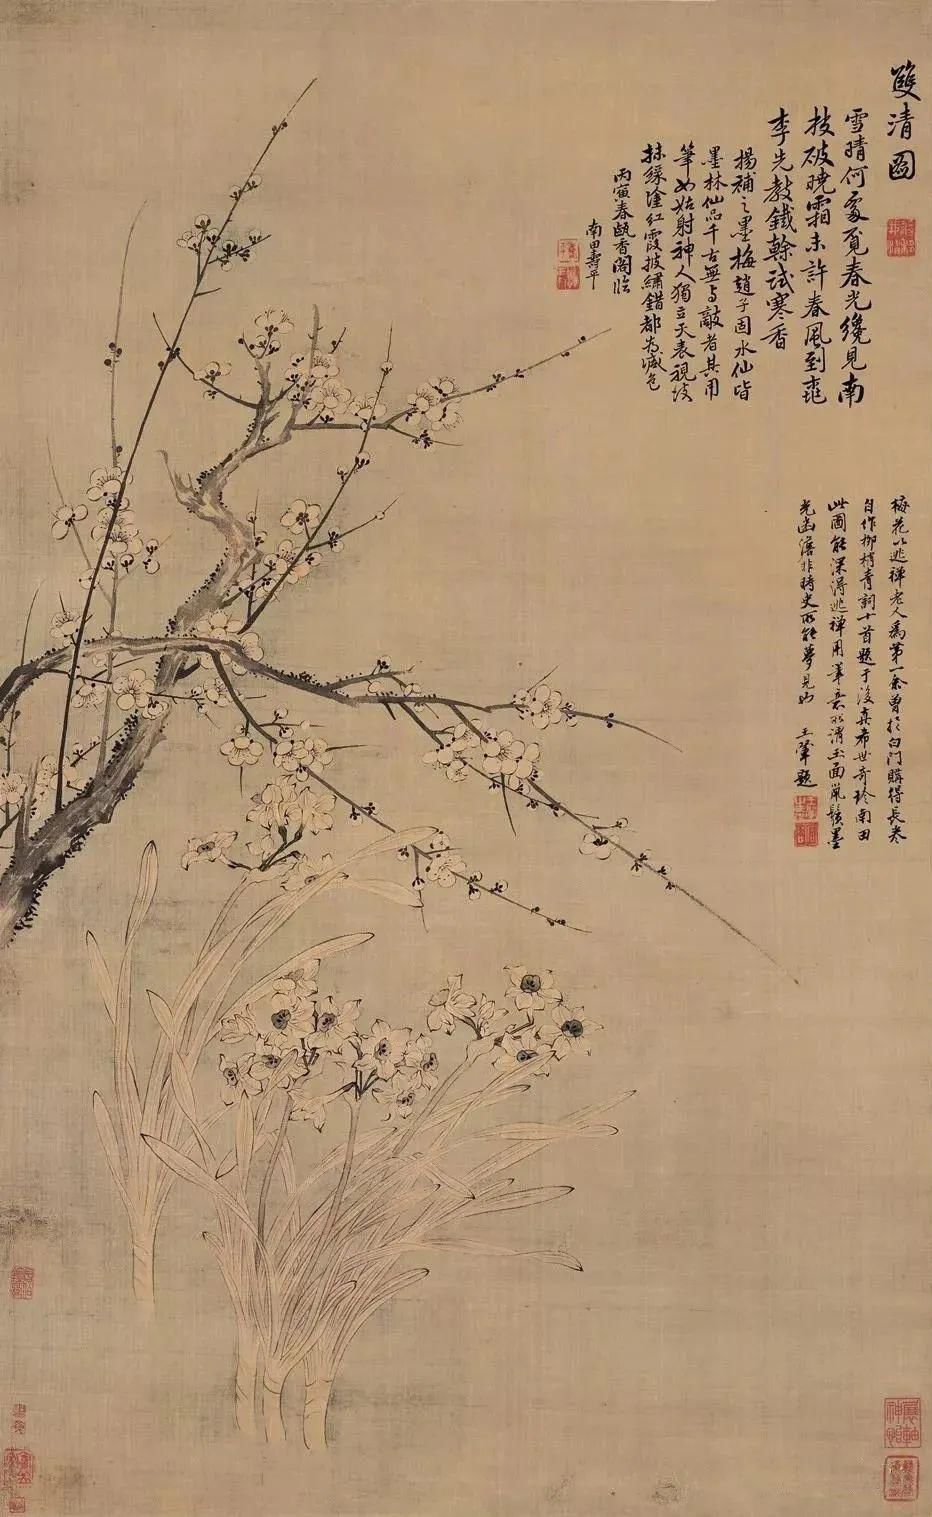 雙清圖
雪晴何處覓春光纔見南
技破曉霜未許春風到
李先教鐵榦試寒香
揚補之墨梅趙子固水仙皆
墨林仙品千古無與敵者其用
筆如姑射神人獨立天表視
抹綠塗紅霞披繡錯都為減色
丙寅春甌香閣臨
南田壽平
梅花以逃禪老人為第一余曾於白門購得長卷
自作柳梢青詞十首題于後真希世奇珍南田
此圖能深得逃禪用筆意所謂玉面鼠鬚墨
光幽澹非時史所能夢見也
王翬題